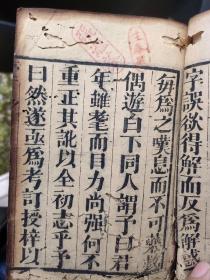 字誤欲得解而反爲解惑
每爲之嘆息而不可
偶遊白下同人謂予曰君
年雖耄而目力尚强何不
重正其訛以全初志乎予
曰然遂亟爲考訂授梓以